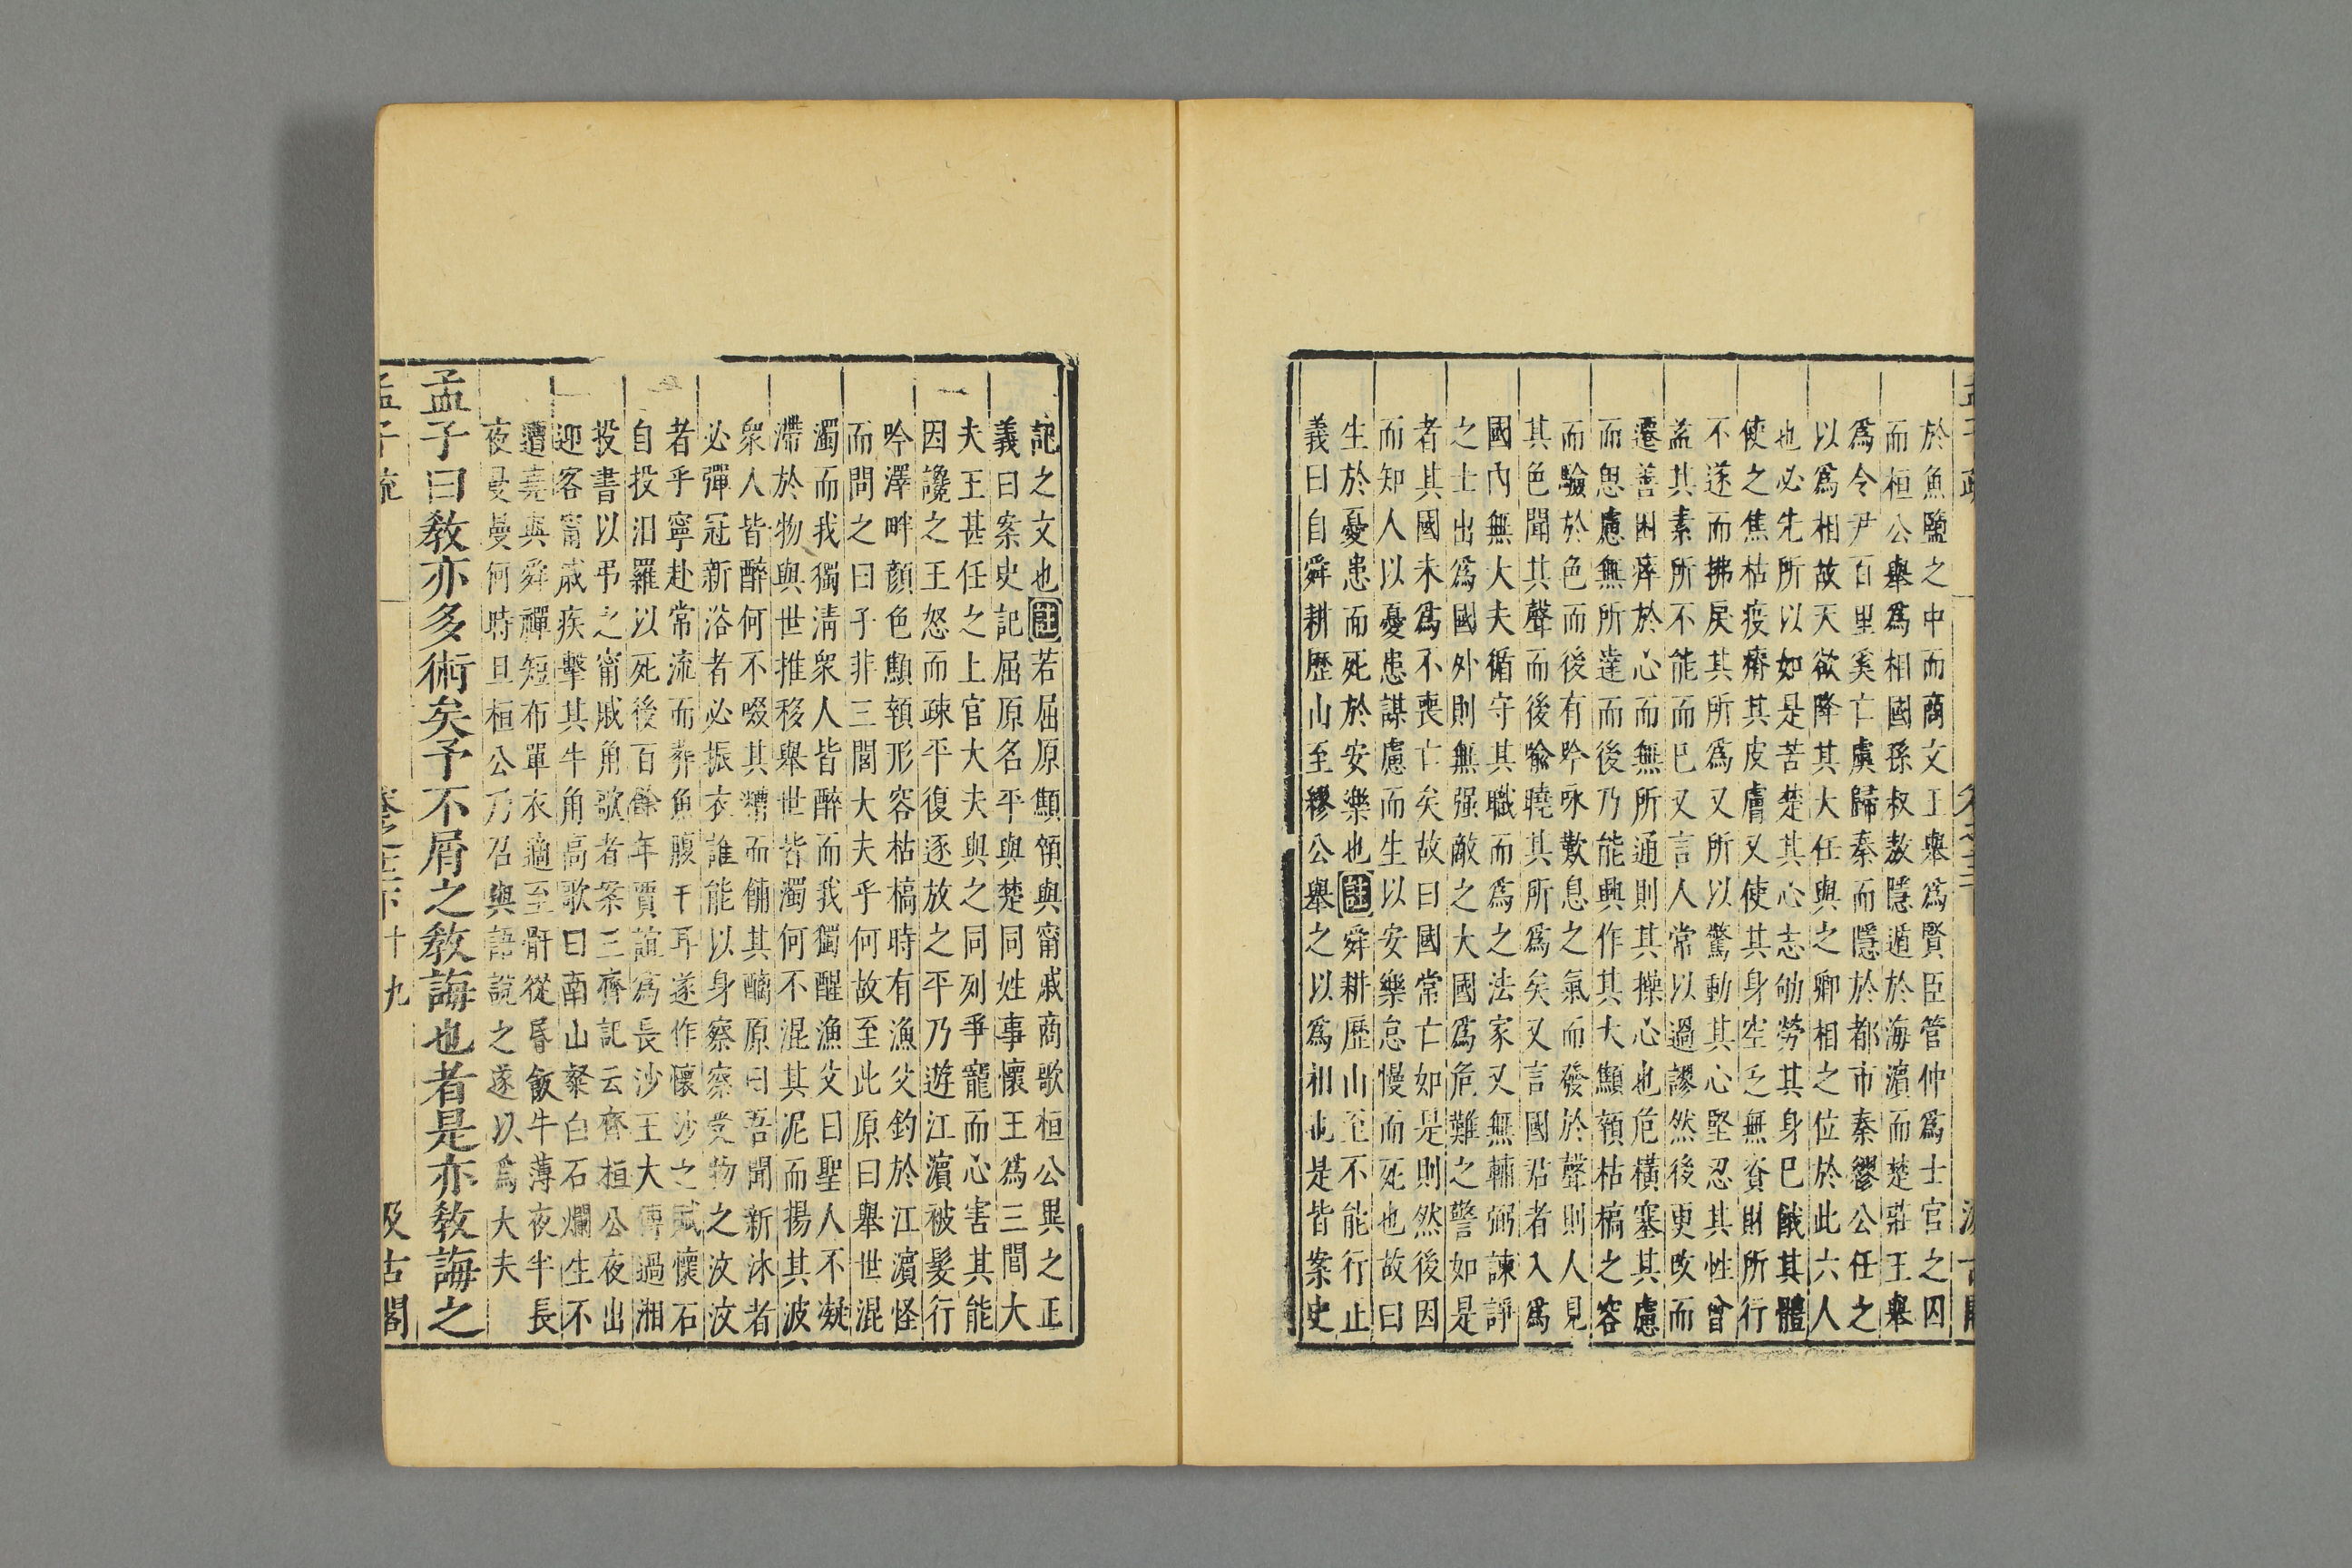 於魚鹽之中而商文王舉爲賢臣管仲爲士官之囚
而桓公舉爲相國孫叔敖隱遁於海濱而楚莊王舉
爲令尹百里奚亡虞歸秦而隱於都市秦繆公任之
以爲相故天欲降其大任與之卿相之位於此六人
也必先所以如是苦楚其心志劬勞其身巳餓其體
使之焦枯疫瘠其皮膚又使其身空乏無資財所行
不遂而拂戾其所爲又所以驚動其心堅忍其性曾
益其素所不能而巳又言人常以過謬然後更改而
遷善困瘁於心而無所通則其操心也危橫塞其慮
而思慮無所達而後乃能興作其大顯頟枯槁之容
而驗於色而後有吟咏歎息之氣而發於聲則人見
其色聞其聲而後喻曉其所爲矣又言國君者入爲
國內無大夫循守其職而爲之法家又無輔弼諫諍
之士出爲國外則無强敵之大國爲危難之警如是
者其國未爲不喪亡矣故曰國常亡如是則然後因
而知人以憂患謀慮而生以安樂怠慢而死也故曰
生於憂患而死於安樂也註舜耕歷山至不能行止
義曰自舜耕歷山至穆公舉之以爲相也是皆案史
記之文也註若屈原顦頟與甯戚商歌桓公異之正
義曰案史記屈原名平與楚同姓事懷王爲三閭大
夫王甚任之上官大夫與之同列爭寵而心害其能
因讒之王怒而疎平復逐放之平乃遊江濱被髮行
吟澤畔顏色顦頟形容枯槁時有漁父釣於江濱怪
而問之曰子非三閭大夫乎何故至此原曰舉世混
濁而我獨清眾人皆醉而我獨醒漁父曰聖人不凝
滯於物與世推移舉世皆濁何不混其泥而揚其波
衆人皆醉何不啜其糟而餔其醨原曰吾聞新沐者
必彈冠新浴者必振衣誰能以身察察受物之汶汶
者乎寧赴常流而葬魚腹干耳遂作懷沙之賦懷石
自投汨羅以死後百餘年賈誼爲長沙王大傅過湘
投書以弔之甯戚角歌者案三齊記云齊桓公夜出
迎客甯戚疾擊其牛角高歌曰南山粲白石爛生不
遭堯與舜禪短布單衣適至骭從昏飯牛薄夜半長
夜曼曼何時旦桓公乃召與語說之遂以爲大夫
孟子曰教亦多術矣予不屑之教誨也者是亦教誨之
孟子疏 卷之十二下 十九 汲古閣